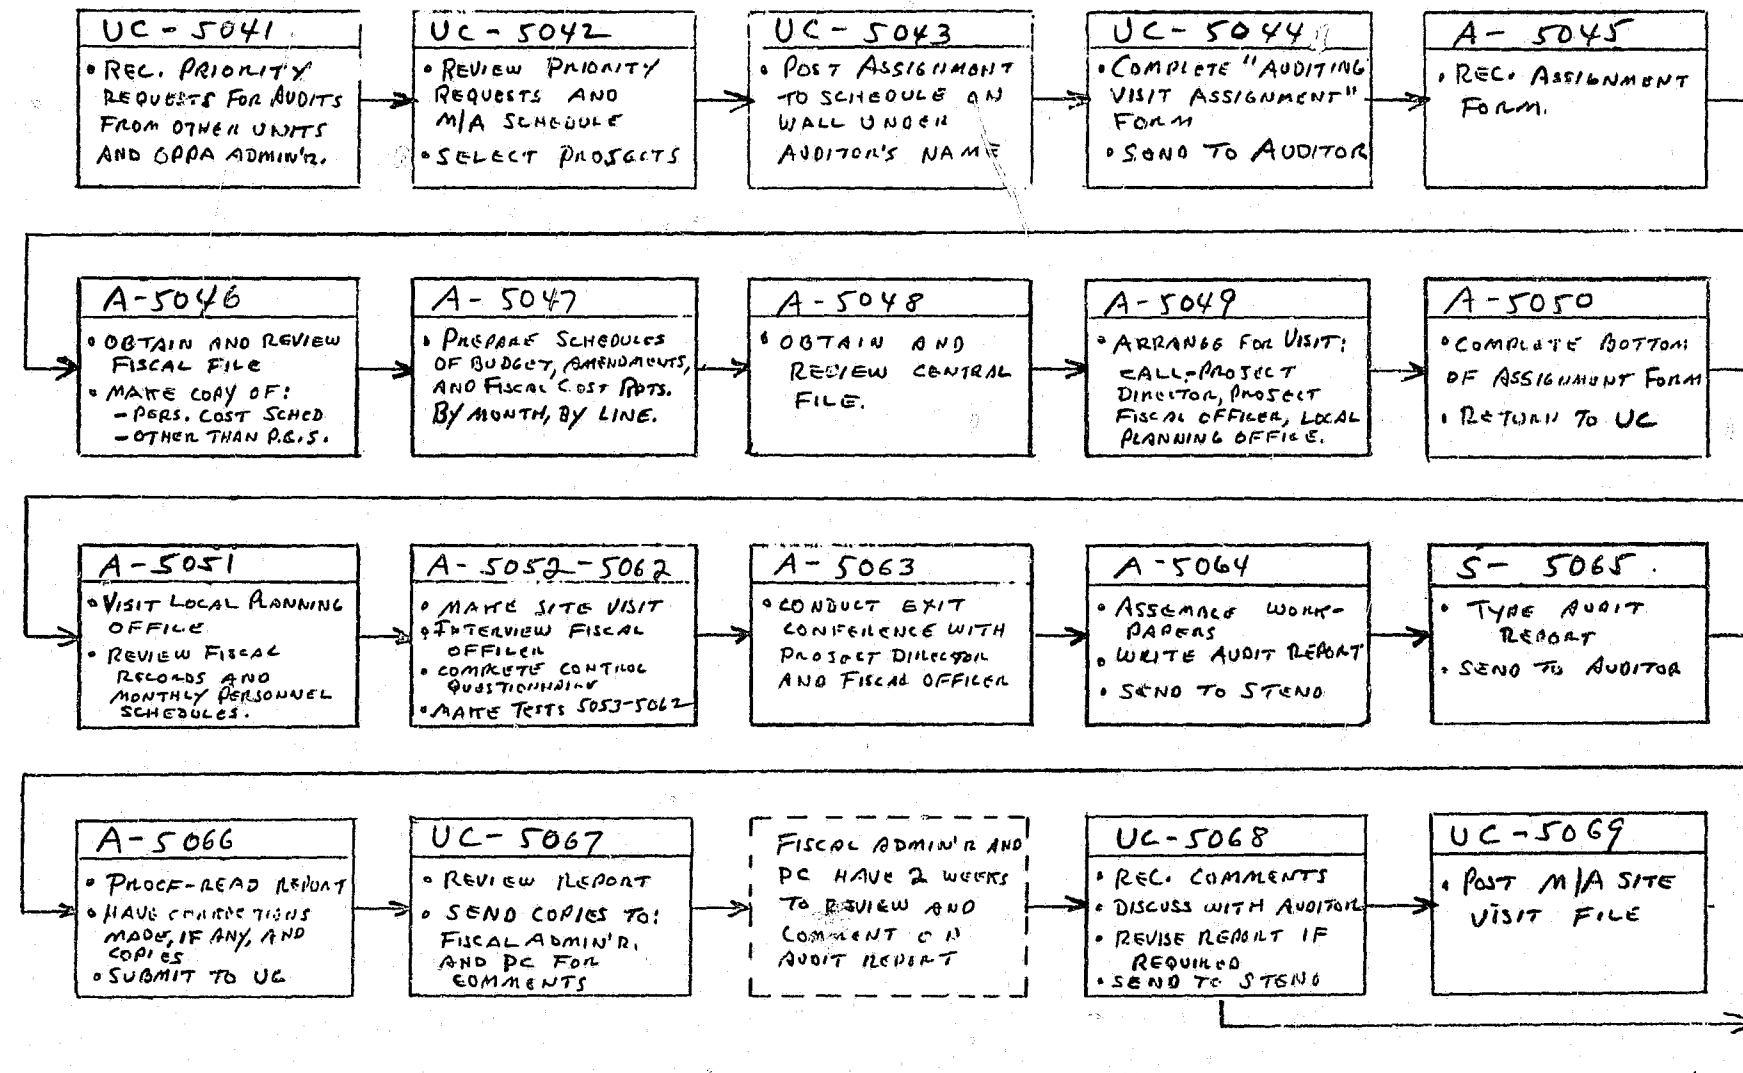 UC - 5041
• REC. PRIORITY
REQUESTS FOR AUDITS
FROM OTHER UNITS
AND OPPA ADMIN'R.
UC - 5042
• REVIEW PRIORITY
REQUESTS AND
M/A SCHEDULE
• SELECT PROJECTS
UC - 5043
• POST ASSIGNMENT
TO SCHEDULE ON
WALL UNDER
AUDITOR'S NAME
UC - 5044
• COMPLETE "AUDITING
VISIT ASSIGNMENT"
FORM
• SEND TO AUDITOR
A - 5045
• REC. ASSIGNMENT
FORM.
A-5046
• OBTAIN AND REVIEW
FISCAL FILE
• MAKE COPY OF:
- PERS. COST SCHED
- OTHER THAN P.C.S.
A - 5047
• PREPARE SCHEDULES
OF BUDGET, AMENDMENTS,
AND FISCAL COST RPTS.
BY MONTH, BY LINE.
A - 5048
• OBTAIN AND
REVIEW CENTRAL
FILE.
A - 5049
• ARRANGE FOR VISIT:
CALL-PROJECT
DIRECTOR, PROJECT
FISCAL OFFICER, LOCAL
PLANNING OFFICE.
A - 5050
• COMPLETE BOTTOM
OF ASSIGNMENT FORM
• RETURN TO UC
A - 5051
• VISIT LOCAL PLANNING
OFFICE
• REVIEW FISCAL
RECORDS AND
MONTHLY PERSONNEL
SCHEDULES.
A - 5052-5062
• MAKE SITE VISIT
• INTERVIEW FISCAL
OFFICER
• COMPLETE CONTROL
QUESTIONNAIRE
• MAKE TESTS 5053-5062
A - 5063
• CONDUCT EXIT
CONFERENCE WITH
PROJECT DIRECTOR
AND FISCAL OFFICER
A - 5064
• ASSEMBLE WORK-
PAPERS
• WRITE AUDIT REPORT
• SEND TO STENO
S - 5065
• TYPE AUDIT
REPORT
• SEND TO AUDITOR
A - 5066
• PROOF-READ REPORT
• HAVE CORRECTIONS
MADE, IF ANY, AND
COPIES
• SUBMIT TO UC
UC - 5067
• REVIEW REPORT
• SEND COPIES TO:
FISCAL ADMIN'R.
AND PC FOR
COMMENTS
FISCAL ADMIN'R AND
PC HAVE 2 WEEKS
TO REVIEW AND
COMMENT ON
AUDIT REPORT
UC - 5068
• REC. COMMENTS
• DISCUSS WITH AUDITOR
• REVISE REPORT IF
REQUIRED
• SEND TO STENO
UC - 5069
• POST M/A SITE
VISIT FILE